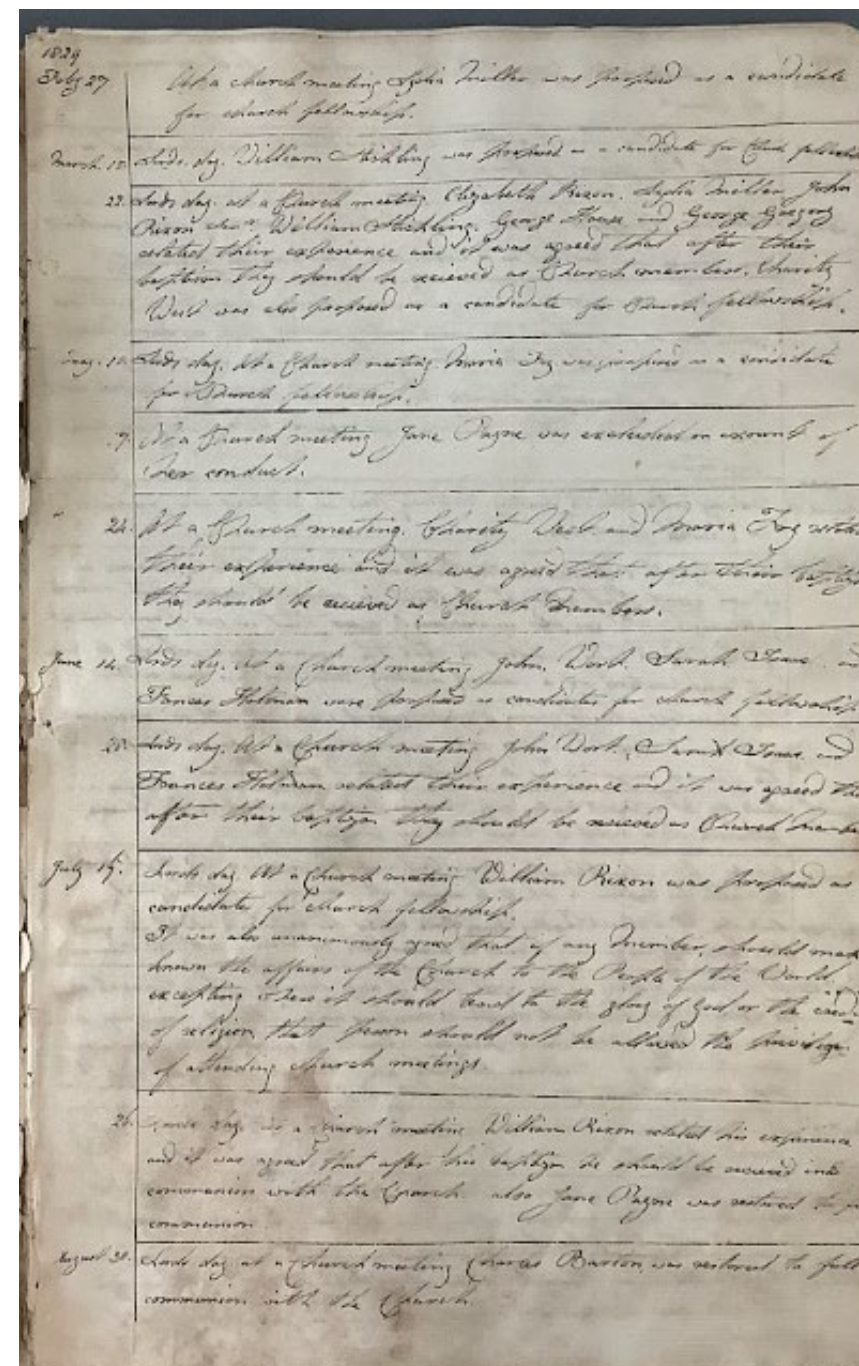 1829
Feby 27 At a church meeting Lydia Miller was proposed as a candidate
for church fellowship.
March 15 Lords day. William Stickling was proposed as a candidate for Church fellowship
22. Lords day at a Church meeting Elizabeth Rixon, Lydia Miller, John
Rixon Senr William Stickling, George House and George Gregory
related their experience and it was agreed that after their
baptism they should be recieved as Church members. Charity
West was also proposed as a candidate for Church fellowship.
May. 10. Lords day. At a Church meeting Maria Fry was proposed as a candidate
for Church fellowship.
17. At a Church meeting Jane Payne was excluded on account of
her conduct.
24. At a Church meeting. Charity West and Maria Fry related
their experience and it was agreed that after their baptism
they should be recieved as Church Members.
June 14. Lords day. At a Church meeting John. Sarah and
Frances Holman were proposed as candidates for church fellowship
28. Lords day. At a Church meeting John and
Frances Holman related their experience and it was agreed tha
after their baptism they should be recieved as Church Membe
July 19. Lords day At a Church meeting William Rixon was proposed as
candidate for church fellowship.
It was also unanimously agreed that if any Member, should make
known the affairs of the Church to the People of the World
excepting where it should tend to the glory of God or the
of religion, that person should not be allowed the privilege
of attending church meetings.
26. Lords day at a Church meeting William Rixon related his experience
and it was agreed that after his baptism he should be recieved into
communion with the Church. also Jane Payne was restored to
communion.
August 30. Lords day at a Church meeting Charles Burton, was restored to full
communion with the Church.